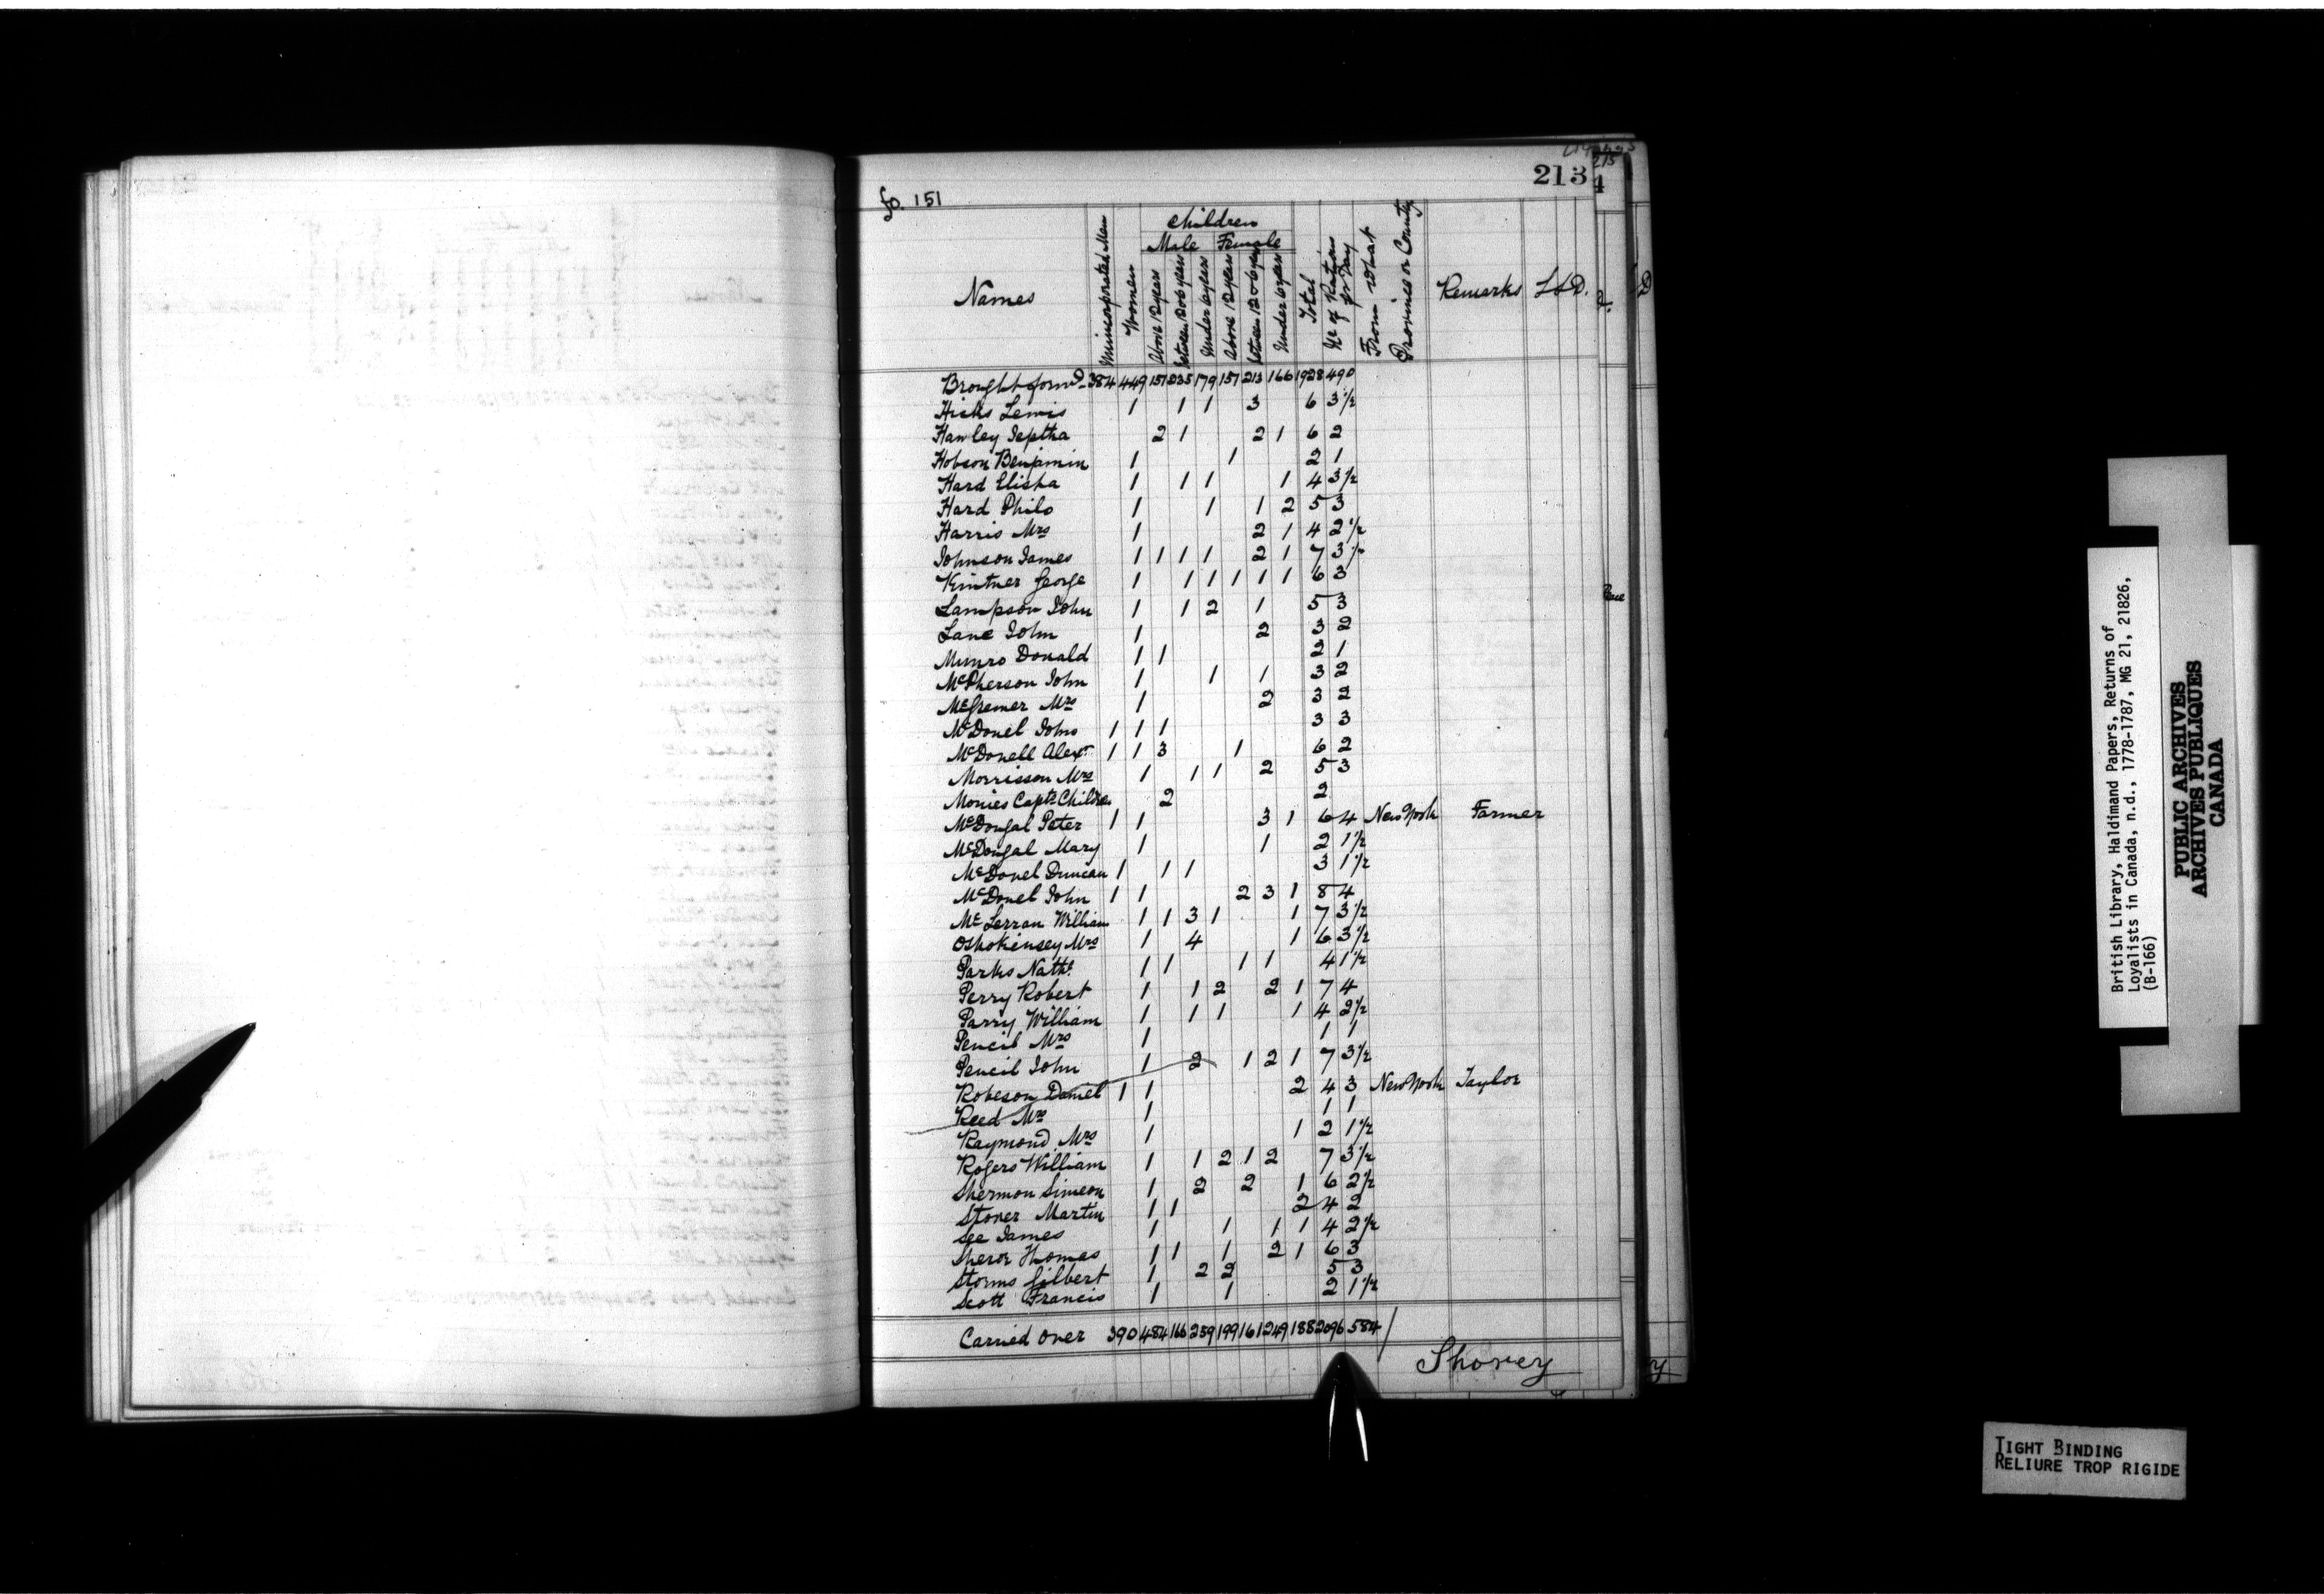 213
215
fo. 151
Names
Unincorporated Men
Women
Children
Male Female
Above 12 years
between 12 & 6 years
Under 6 years
Above 12 years
between 12 & 6 years
Under 6 years
Total
No of Rations pr Day
From What Province or County
Remarks
L S D.
Brought forwd 384 449 151 235 179 151 213 166 1928 490
Hicks Lewis 1 1 1 3 6 3 1/2
Hawley Jeptha 2 1 2 1 6 2
Hobson Benjamin 1 1 2 1
Hard Elisha 1 1 1 1 4 3 1/2
Hard Philo 1 1 1 2 5 3
Harris Mrs 1 2 1 4 2 1/2
Johnson James 1 1 1 1 2 1 7 3 1/2
Kintner George 1 1 1 1 1 1 6 3
Lampson John 1 1 2 1 5 3
Lane John 1 2 3 2
Munro Donald 1 1 2 1
McPherson John 1 1 1 3 2
Mrs 1 2 3 2
McDonel John 1 1 1 3 3
McDonell Alexr 1 1 3 1 6 2
Morrisson Mrs 1 1 1 2 5 3
Monies Capts Children 2 2
McDougal Peter 1 1 3 1 6 4 New York Farmer
McDougal Mary 1 1 2 1 1/2
McDonel Duncan 1 1 1 3 1 1/2
McDonel John 1 1 2 3 1 8 4
McLerran William 1 1 3 1 1 7 3 1/2
Oshokensey Mrs 1 4 1 6 3 1/2
Parks Nathl 1 1 1 1 4 1 1/2
Perry Robert 1 1 2 2 1 7 4
Parry William 1 1 1 1 4 2 1/2
Pencil Mrs 1 1 1
Pencil John 1 2 1 2 1 7 3 1/2
Robeson Daniel 1 1 2 4 3 New York Taylor
Reed Mrs 1 1 1
Raymond Mrs 1 1 2 1 1/2
Rogers William 1 1 2 1 2 7 3 1/2
Shermon Simeon 1 2 2 1 6 2 1/2
Stover Martin 1 1 2 4 2
See James 1 1 1 1 4 2 1/2
Sheror Thomas 1 1 1 2 1 6 3
Storms Gilbert 1 2 2 5 3
Scott Francis 1 1 2 1 1/2
Carried over 390 484 166 259 199 161 249 188 2096 584
Shorey
British Library, Haldimand Papers, Returns of
Loyalists in Canada, n.d., 1778-1787, MG 21, 21826,
(B-166)
PUBLIC ARCHIVES
ARCHIVES PUBLIQUES
CANADA
TIGHT BINDING
RELIURE TROP RIGIDE